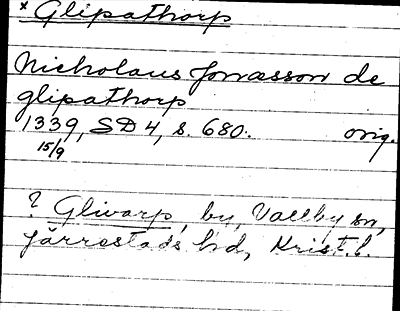 * Glipathorp
Nicholaus Jonæsson de
glipathorp
1339, SD 4, s. 680. orig.
15/9
? Glivarp, by, Vallby sn,
Järrestads hd, Krist. l.